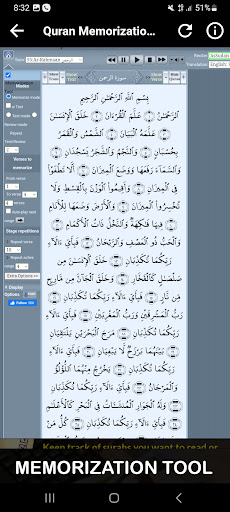 8:32
51%
Quran Memorizatio...
55:Ar-Rahmaan
سورة الرحمن
Modes
Memorize mode
Test mode
Review mode
Repeat
Verses to memorize
From verse
To verse
Auto-play next
Stage repetitions
Repeat verse
10
Repeat active
range
Extra Options >>
Display
Options
بِسْمِ اللَّهِ الرَّحْمَٰنِ الرَّحِيمِ
الرَّحْمَٰنُ عَلَّمَ الْقُرْءَانَ خَلَقَ الْإِنسَٰنَ
عَلَّمَهُ الْبَيَانَ الشَّمْسُ وَالْقَمَرُ
بِحُسْبَانٍ وَالنَّجْمُ وَالشَّجَرُ يَسْجُدَانِ
وَالسَّمَاءَ رَفَعَهَا وَوَضَعَ الْمِيزَانَ أَلَّا تَطْغَوْا
فِي الْمِيزَانِ وَأَقِيمُوا الْوَزْنَ بِالْقِسْطِ وَلَا
تُخْسِرُوا الْمِيزَانَ وَالْأَرْضَ وَضَعَهَا لِلْأَنَامِ
فِيهَا فَاكِهَةٌ وَالنَّخْلُ ذَاتُ الْأَكْمَامِ
وَالْحَبُّ ذُو الْعَصْفِ وَالرَّيْحَانُ فَبِأَيِّ ءَالَاءِ
رَبِّكُمَا تُكَذِّبَانِ خَلَقَ الْإِنسَٰنَ مِن
صَلْصَٰلٍ كَالْفَخَّارِ وَخَلَقَ الْجَانَّ مِن مَّارِجٍ
مِّن نَّارٍ فَبِأَيِّ ءَالَاءِ رَبِّكُمَا تُكَذِّبَانِ
رَبُّ الْمَشْرِقَيْنِ وَرَبُّ الْمَغْرِبَيْنِ فَبِأَيِّ ءَالَاءِ
رَبِّكُمَا تُكَذِّبَانِ مَرَجَ الْبَحْرَيْنِ يَلْتَقِيَانِ
بَيْنَهُمَا بَرْزَخٌ لَّا يَبْغِيَانِ فَبِأَيِّ ءَالَاءِ
رَبِّكُمَا تُكَذِّبَانِ يَخْرُجُ مِنْهُمَا اللُّؤْلُؤُ
وَالْمَرْجَانُ فَبِأَيِّ ءَالَاءِ رَبِّكُمَا تُكَذِّبَانِ
وَلَهُ الْجَوَارِ الْمُنشَـَٔاتُ فِي الْبَحْرِ كَالْأَعْلَٰمِ
فَبِأَيِّ ءَالَاءِ رَبِّكُمَا تُكَذِّبَانِ كُلُّ مَنْ
Keep track of surahs you want to read or
MEMORIZATION TOOL